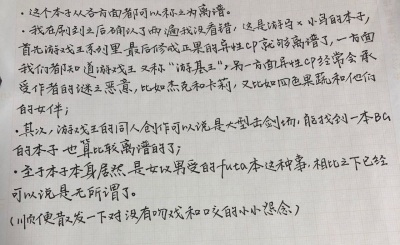 ·这个本子从各方面都可以称之为离谱。
·我在刷到之后确认了两遍我没看错，这是游守×小鸟的本子，
首先游戏王系列里最后修成正果的异性CP就够离谱了，一方面
我们都知道游戏王又称“游基王”，另一方面异性CP经常会承
受作者的谜之恶意，比如杰克和卡莉，又比如四色果蔬和他们
的女伴；
·其次，游戏王的同人创作可以说是大型击剑场，能找到一本BG
的本子也算比较离谱的了；
·至于本子本身居然是女攻男受的futa本这种事，相比之下已经
可以说是无所谓了。
（顺便散发一下对没有吻戏和口交的小小怨念）